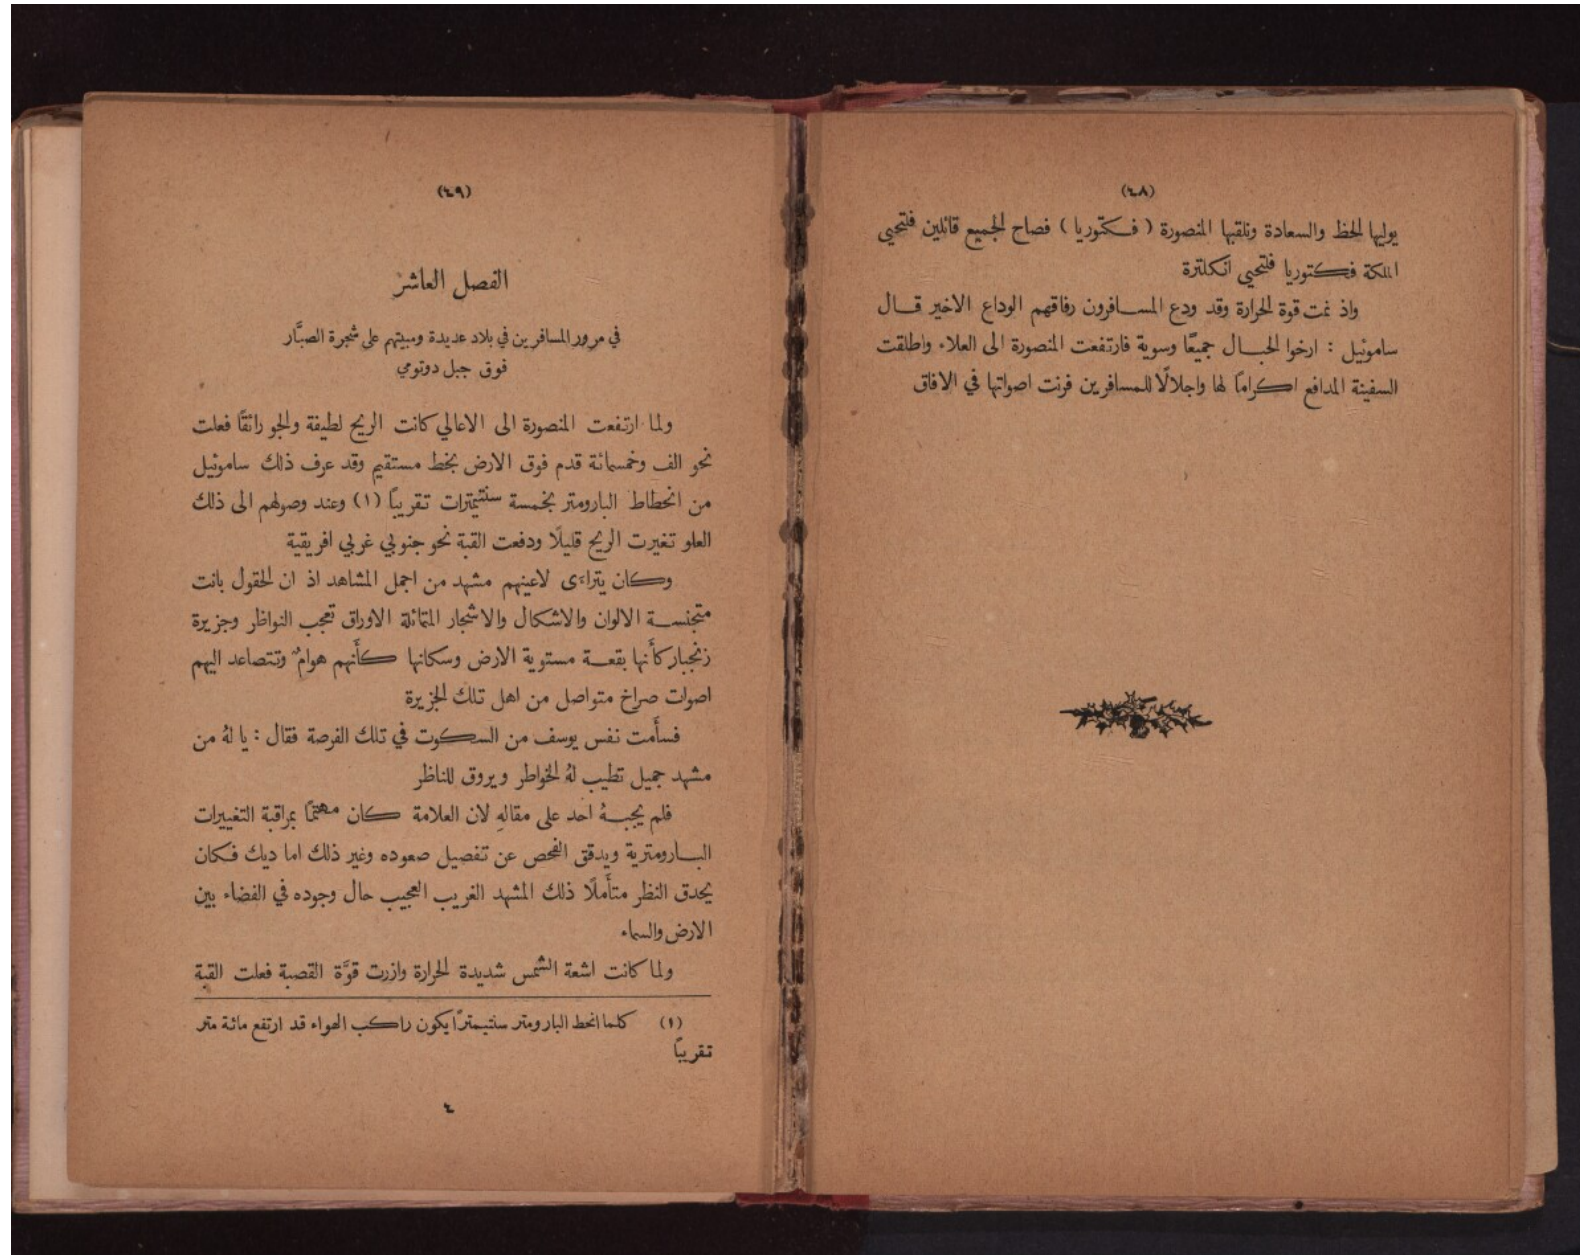 (٤٨)
يوليها الحظ والسعادة ونلقبها المنصورة ( فكتوريا ) فصاح الجميع قائلين فلتحيي
الملكة فكتوريا فلتحيي انكلترة
واذ نمت قوة الحرارة وقد ودع المسافرون رفاقهم الوداع الاخير قال
ساموئيل : ارخوا الحبال جميعًا وسوية فارتفعت المنصورة الى العلاء واطلقت
السفينة المدافع اكرامًا لها واجلالًا للمسافرين فرنت اصواتها في الافاق
(٤٩)
الفصل العاشر
في مرور المسافرين في بلاد عديدة ومبيتهم على شجرة الصبَّار
فوق جبل دوتومي
ولما ارتفعت المنصورة الى الاعالي كانت الريح لطيفة والجو رائقًا فعلت
نحو الف وخمسمائة قدم فوق الارض بخط مستقيم وقد عرف ذلك ساموئيل
من انحطاط البارومتر بخمسة سنتيمترات تقريبًا (١) وعند وصولهم الى ذلك
العلو تغيرت الريح قليلًا ودفعت القبة نحو جنوبي غربي افريقية
وكان يتراءَى لاعينهم مشهد من اجمل المشاهد اذ ان الحقول بانت
متجنسة الالوان والاشكال والاشجار المتماثلة الاوراق تعجب النواظر وجزيرة
زنجبار كأَنها بقعة مستوية الارض وسكانها كأَنهم هوامٌ وتتصاعد اليهم
اصوات صراخ متواصل من اهل تلك الجزيرة
فسأَمت نفس يوسف من السكوت في تلك الفرصة فقال : يا لهُ من
مشهد جميل تطيب لهُ الخواطر ويروق للناظر
فلم يجبهُ احد على مقالهِ لان العلامة كان مهتمًا بمراقبة التغييرات
البارومترية ويدقق الفحص عن تفصيل صعوده وغير ذلك اما ديك فكان
يحدق النظر متأَملًا ذلك المشهد الغريب العجيب حال وجوده في الفضاء بين
الارض والسماء
ولما كانت اشعة الشمس شديدة الحرارة وازرت قوَّة القصبة فعلت القبة
(١) كلما انحط البارومتر سنتيمترًا يكون راكب الهواء قد ارتفع مائة متر
تقريبًا
٤